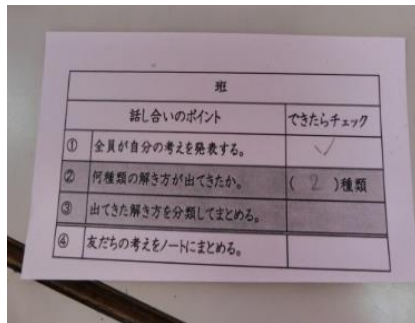 班
話し合いのポイント できたらチェック
① 全員が自分の考えを発表する。 ✓
② 何種類の解き方が出てきたか。 ( 2 )種類
③ 出てきた解き方を分類してまとめる。
④ 友だちの考えをノートにまとめる。